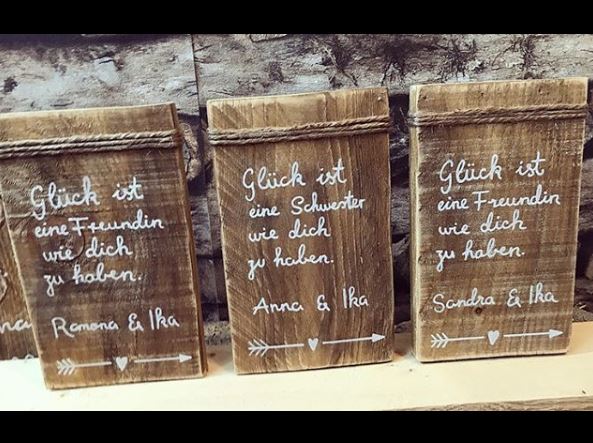 Glück ist
eine Freundin
wie dich
zu haben.
Ramona & Ika
Glück ist
eine Schwester
wie dich
zu haben.
Anna & Ika
Glück ist
eine Freundin
wie dich
zu haben.
Sandra & Ika